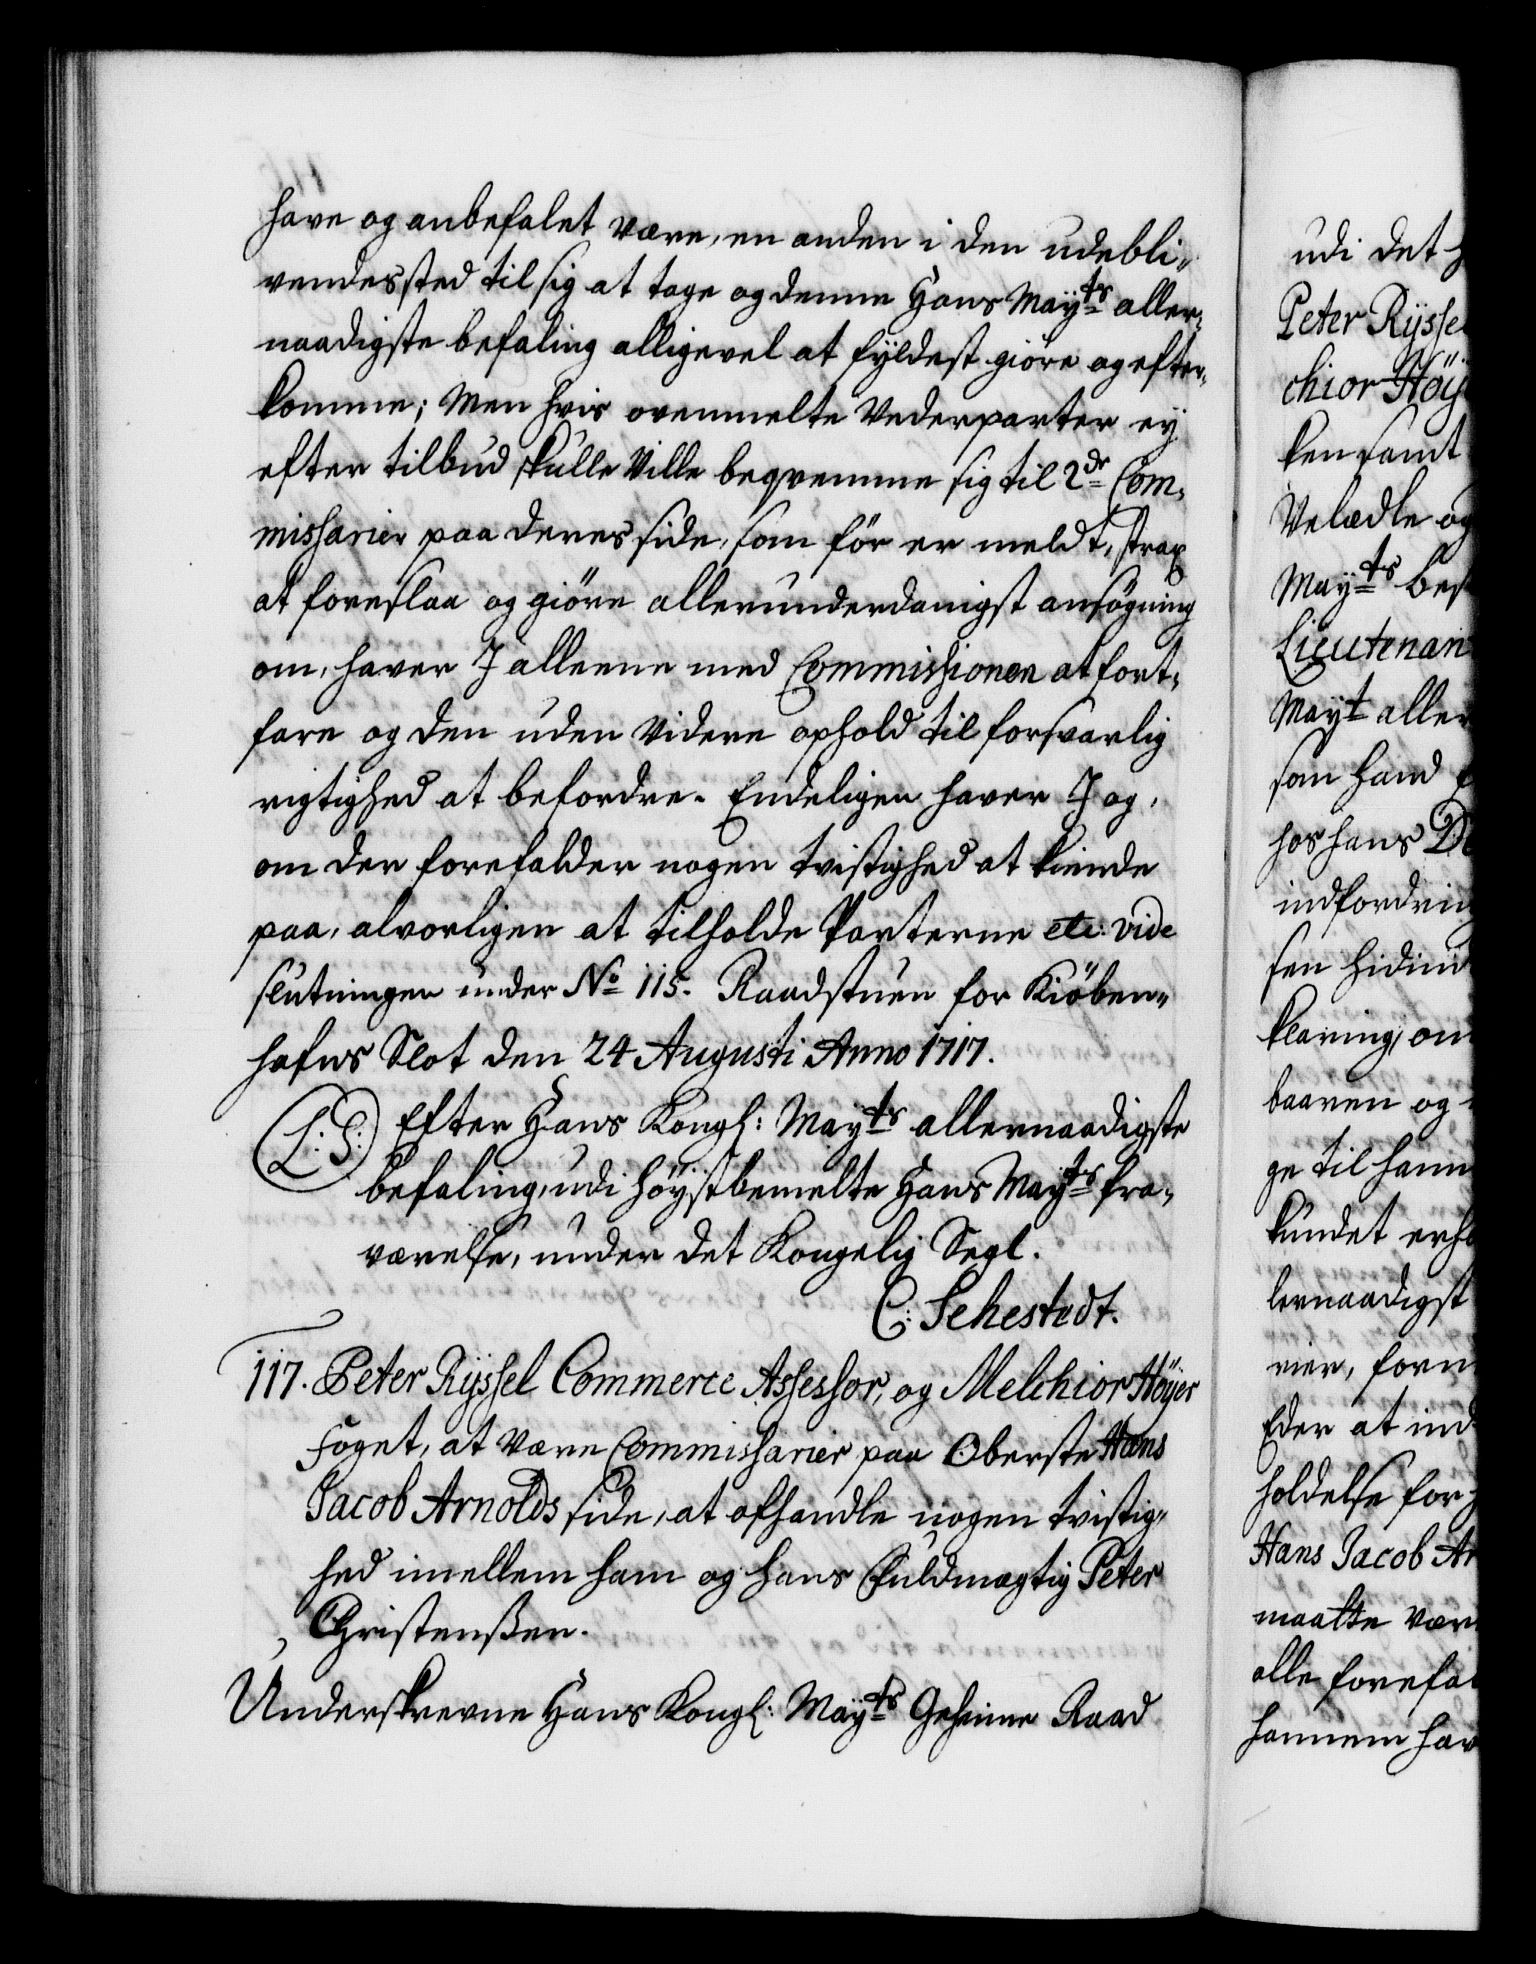 have og anbefalet være, en anden i den udebli-
vendes sted til sig at tage og denne Hans Mayts aller-
naadigste befaling alligevel at fyldest giøre og efter-
komme; Men hvis ovenmelte Vederparter ey
efter tilbud skulle Ville beqvemme sig til 2de Com-
missarier paa deres side, som för er meldt, strax
at foreslaa og giöre allerunderdanigst ansögning
om, haver I alleene med Commissionen at fort-
fare og den uden Videre ophold til forsvarlig
rigtighed at befordre. Endeligen haver I og,
om der forefalder nogen tvistighed at kiende
paa, alvorligen at tilholde Parterne etc: vide
slutningen under No 115. Raadstuen for Kiöben-
hafns Slot den 24 Augusti Anno 1717.
(L: S:) Efter Hans Kongl: Mayts allernaadigste
befaling, udi höystbemelte Hans Mayts fra-
værelse, under det Kongelig Segl.
C: Sehestedt.
117. Peter Rÿssel Commerce Assessor, og Melchior Höÿer
Foget, at være Commissarier paa Oberste Hans
Jacob Arnolds side, at afhandle nogen tvistig-
hed imellem ham og hans Fuldmægtig Peter
Christenßen.
Underskrevne Hans Kongl: Mayts Geheime Raad
udi det
Peter Rÿssel
chior Höÿ
ken samt
Velædle og
Mayts best
Lieutenan
Mayt aller
som hand
hos hans
indfordrin
sen hidind
klaring, om
baaren og
ge til ham
kundet erh
lernaadigst
rier, forn
Eder at ind
holdelse for
Hans Jacob Ar
maatte vær
alle forefal
hannem hav